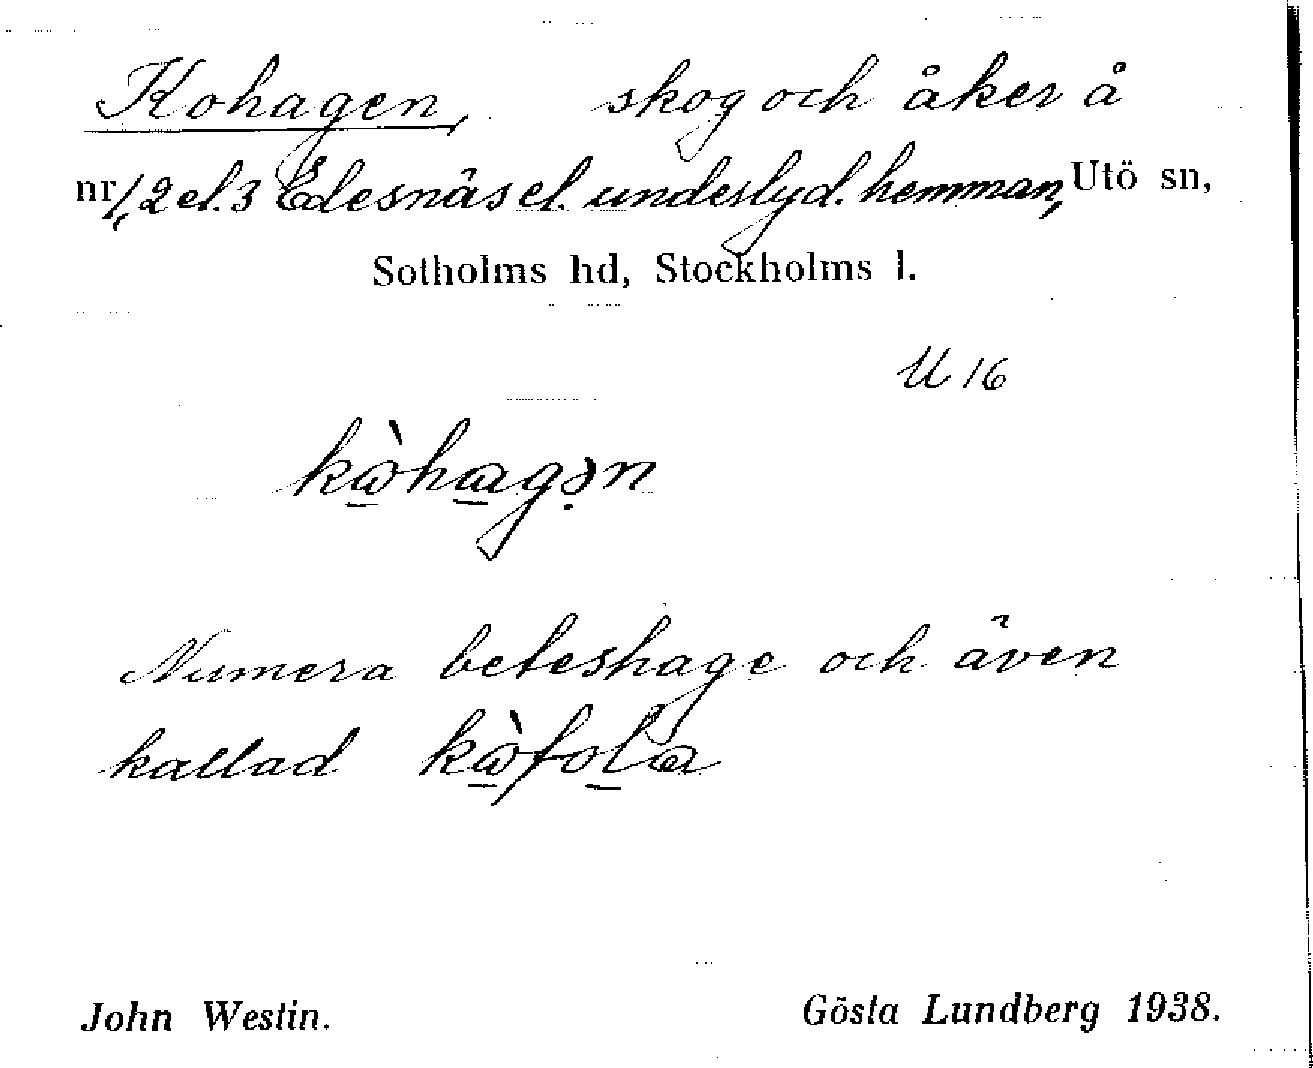 Kohagen, skog och åker å
nr 1, 2 el. 3 Edesnäs el. underlyd. hemman, Utö sn,
Sotholms hd, Stockholms l.
U 16
kὼhagən
Numera beteshage och även
kallad kὼfola
John Westin. Gösta Lundberg 1938.